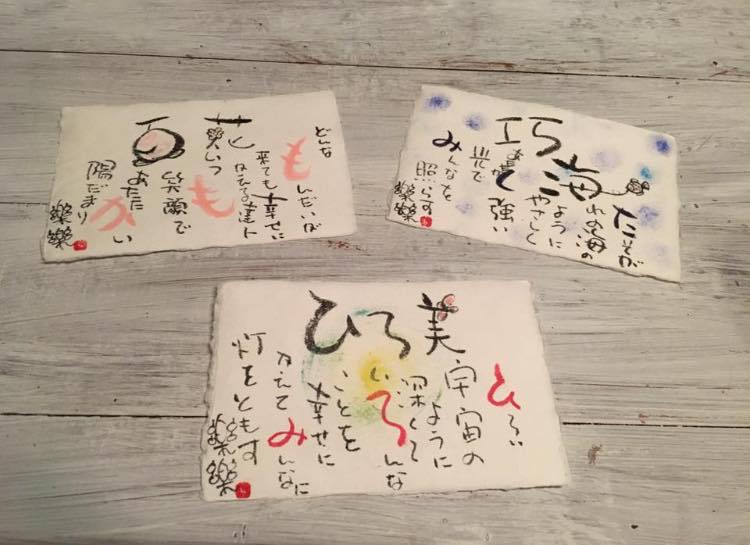 百笑花
どんな
もんだいが
来ても幸せに
かえる達人
いつも
笑顔で
あたたかい
陽だまり
樂樂
巧海
たそが
れの海の
ように
やさしく
く強い
光で
みんなを
照らす
樂樂
ひろ美
ひろい
宇宙の
ように
深くて
いろんな
ことを
幸せに
かえて
みんなに
灯をともす
樂樂